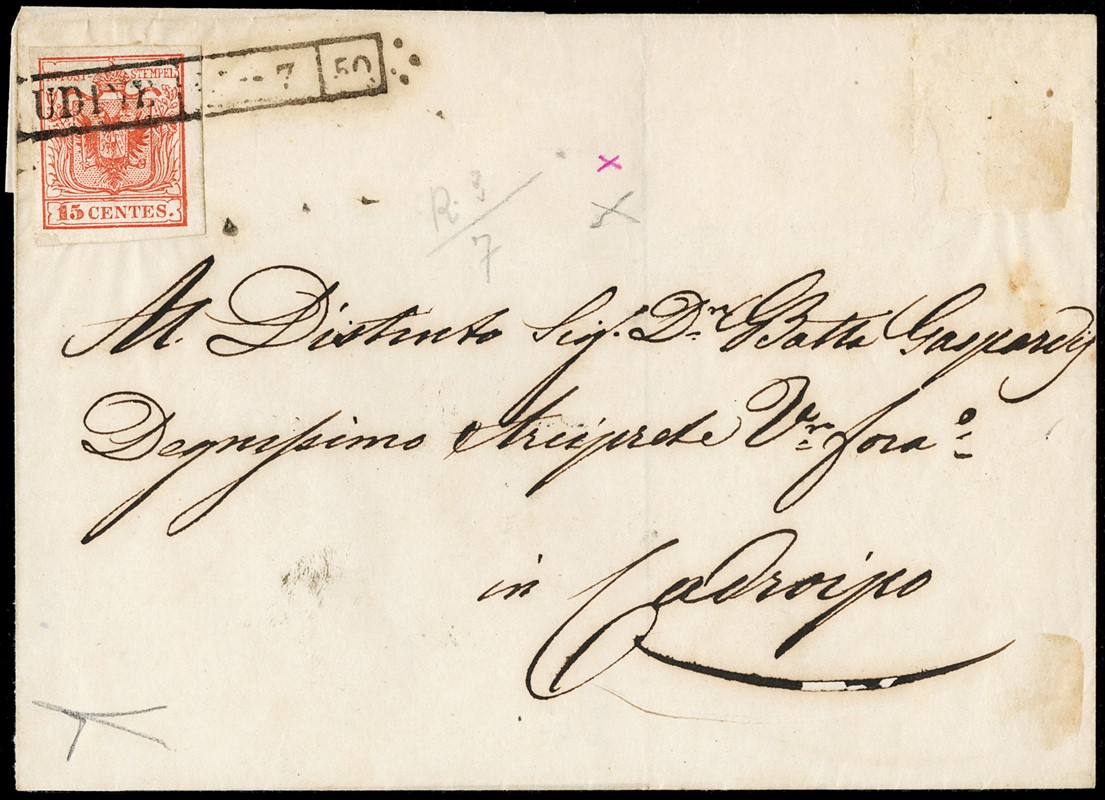 KK POST-STEMPEL
UDINE 7 50
15 CENTES.
R. 3
7
Al Distinto Sig.r D.n GBatta Gaspardis
Degnissimo Arciprete V.rio fora.o
in Codroipo